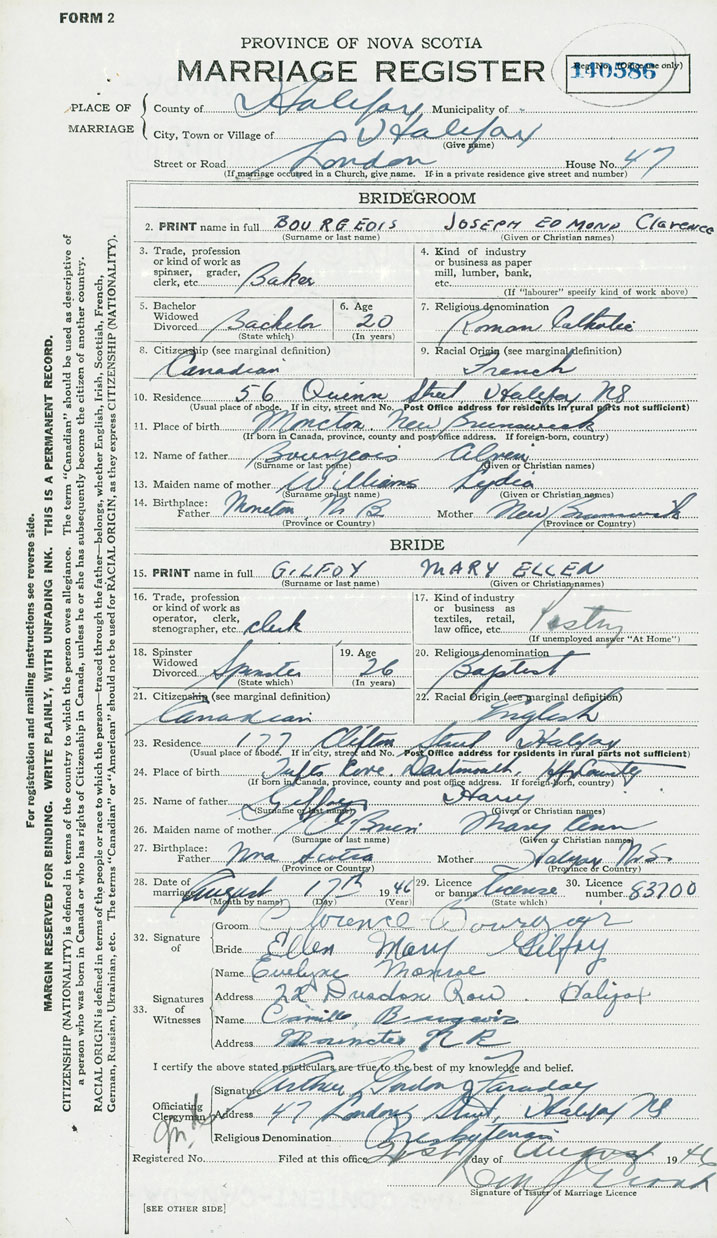 FORM 2
PROVINCE OF NOVA SCOTIA
MARRIAGE REGISTER
Reg. No. (Office use only)
140586
PLACE OF MARRIAGE
County of Halifax, Municipality of
City, Town or Village of Halifax
(Give name)
Street or Road London House No. 47
(If marriage occurred in a Church, give name. If in a private residence give street and number)
BRIDEGROOM
2. PRINT name in full BOURGEOIS JOSEPH EDMOND Clarence
(Surname or last name) (Given or Christian names)
3. Trade, profession or kind of work as spinner, grader, clerk, etc. Baker
4. Kind of industry or business as paper mill, lumber, bank, etc.
(If "labourer" specify kind of work above)
5. Bachelor Widowed Divorced Bachelor
(State which)
6. Age 20
(In years)
7. Religious denomination Roman Catholic
8. Citizenship (see marginal definition) Canadian
9. Racial Origin (see marginal definition) French
10. Residence 56 Quinn Street Halifax NS
(Usual place of abode. If in city, street and No. Post Office address for residents in rural parts not sufficient)
11. Place of birth Moncton New Brunswick
(If born in Canada, province, county and post office address. If foreign-born, country)
12. Name of father Bourgeois
(Surname or last name) (Given or Christian names)
13. Maiden name of mother Williams Lydia
(Surname or last name) (Given or Christian names)
14. Birthplace: Father Moncton N B Mother New Brunswick
(Province or Country) (Province or Country)
BRIDE
15. PRINT name in full GILFOY MARY ELLEN
(Surname or last name) (Given or Christian names)
16. Trade, profession or kind of work as operator, clerk, stenographer, etc. clerk
17. Kind of industry or business as textiles, retail, law office, etc. Pastry
(If unemployed answer "At Home")
18. Spinster Widowed Divorced Spinster
(State which)
19. Age 26
(In years)
20. Religious denomination Baptist
21. Citizenship (see marginal definition) Canadian
22. Racial Origin (see marginal definition) English
23. Residence 177 Clifton Street Halifax
(Usual place of abode. If in city, street and No. Post Office address for residents in rural parts not sufficient)
24. Place of birth Tufts Cove Dartmouth, Hfx County
(If born in Canada, province, county and post office address. If foreign-born, country)
25. Name of father Gilfoy Harry
(Surname or last name) (Given or Christian names)
26. Maiden name of mother O'Brien Mary Ann
(Surname or last name) (Given or Christian names)
27. Birthplace: Father Nova Scotia Mother Halifax N.S.
(Province or Country) (Province or Country)
28. Date of marriage August 17th 1946
(Month by name) (Day) (Year)
29. Licence or banns License
(State which)
30. Licence number 83700
32. Signature of
Groom Clarence Bourgeois
Bride Ellen Mary Gilfoy
33. Signatures of Witnesses
Name Evelyne Monroe
Address 22 Row Halifax
Name Camille Bourgeois
Address Moncton N B
I certify the above stated particulars are true to the best of my knowledge and belief.
Officiating Clergyman
Signature Arthur Gordon Faraday
Address 47 London Street, Halifax NS
Religious Denomination Presbyterian
Registered No. Filed at this office day of August 1946
Signature of Issuer of Marriage Licence
[SEE OTHER SIDE]
For registration and mailing instructions see reverse side.
MARGIN RESERVED FOR BINDING. WRITE PLAINLY, WITH UNFADING INK. THIS IS A PERMANENT RECORD.
CITIZENSHIP (NATIONALITY) is defined in terms of the country to which the person owes allegiance. The term "Canadian" should be used as descriptive of
a person who was born in Canada or who has rights of Citizenship in Canada, unless he or she has subsequently become the citizen of another country.
RACIAL ORIGIN is defined in terms of the people or race to which the person—traced through the father—belongs, whether English, Irish, Scottish, French,
German, Russian, Ukrainian, etc. The terms "Canadian" or "American" should not be used for RACIAL ORIGIN, as they express CITIZENSHIP (NATIONALITY).